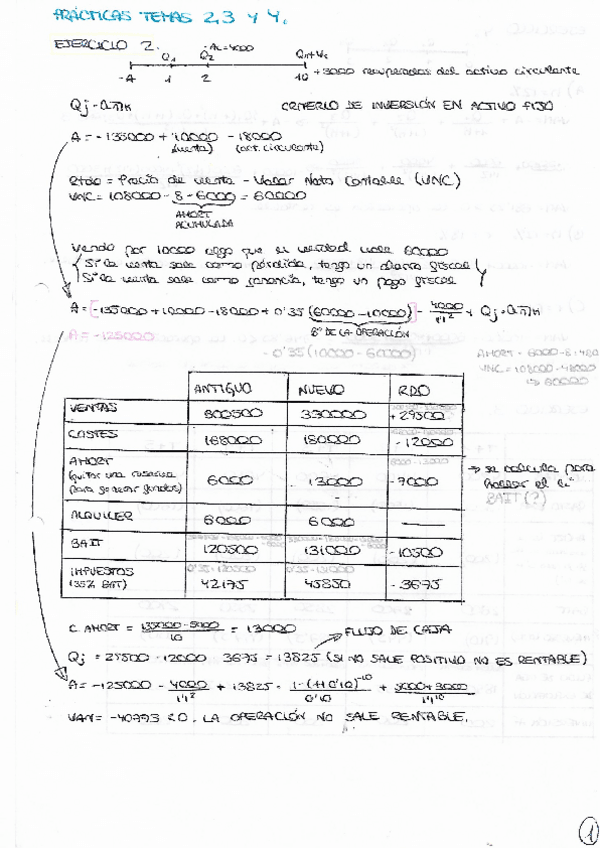 PRÁCTICAS TEMAS 2,3 Y 4.
EJERCICIO 2.
Q1 Q2 Qn+Vr
-A 1 2 10 +3000 recuperados del activo circulante
CRITERIO DE INVERSIÓN EN ACTIVO FIJO
A = -135000 + 10000 - 18000
(venta) (act. circulante)
Rtdo = Precio de venta - Valor Neto Contable (VNC)
VNC = 108000 - 8 · 6000 = 60000
AMORT
ACUMULADA
Vendo por 10000 algo que en realidad vale 60000
Si la venta sale como pérdida, tengo un ahorro fiscal
Si la venta sale como ganancia, tengo un pago fiscal
A = [-135000 + 10000 - 18000 + 0'35 (60000 - 10000)] - 4000/1'1² + Qj
Bº DE LA OPERACIÓN
A = -125000
- 0'35 (10000 - 60000)
AMORT = 6000 · 8 = 480
VNC = 108000 - 48000
=> 60000
ANTIGUO NUEVO RDO
VENTAS 300500 330000 +29500
COSTES 168000 180000 -12000
AMORT
(quitar una
para generar fondos) 6000 -13000 -7000
→ se calcula para
hallar el
BAIT (?)
ALQUILER 6000 6000 —
BAIT 120500 131000 -10500
IMPUESTOS
(35% BAT) 42175 45850 -3675
C. AMORT = (135000 - 5000)/10 = 13000
FLUJO DE CAJA
Qj = 29500 - 12000 - 3675 = 13825 (SI NO SALE POSITIVO NO ES RENTABLE)
A = -125000 - 4000/1'1² + 13825 · (1-(1+0'10)^-10)/0'10 + (5000+3000)/1'1^10
VAN = -40793 < 0. LA OPERACIÓN NO SALE RENTABLE.
1